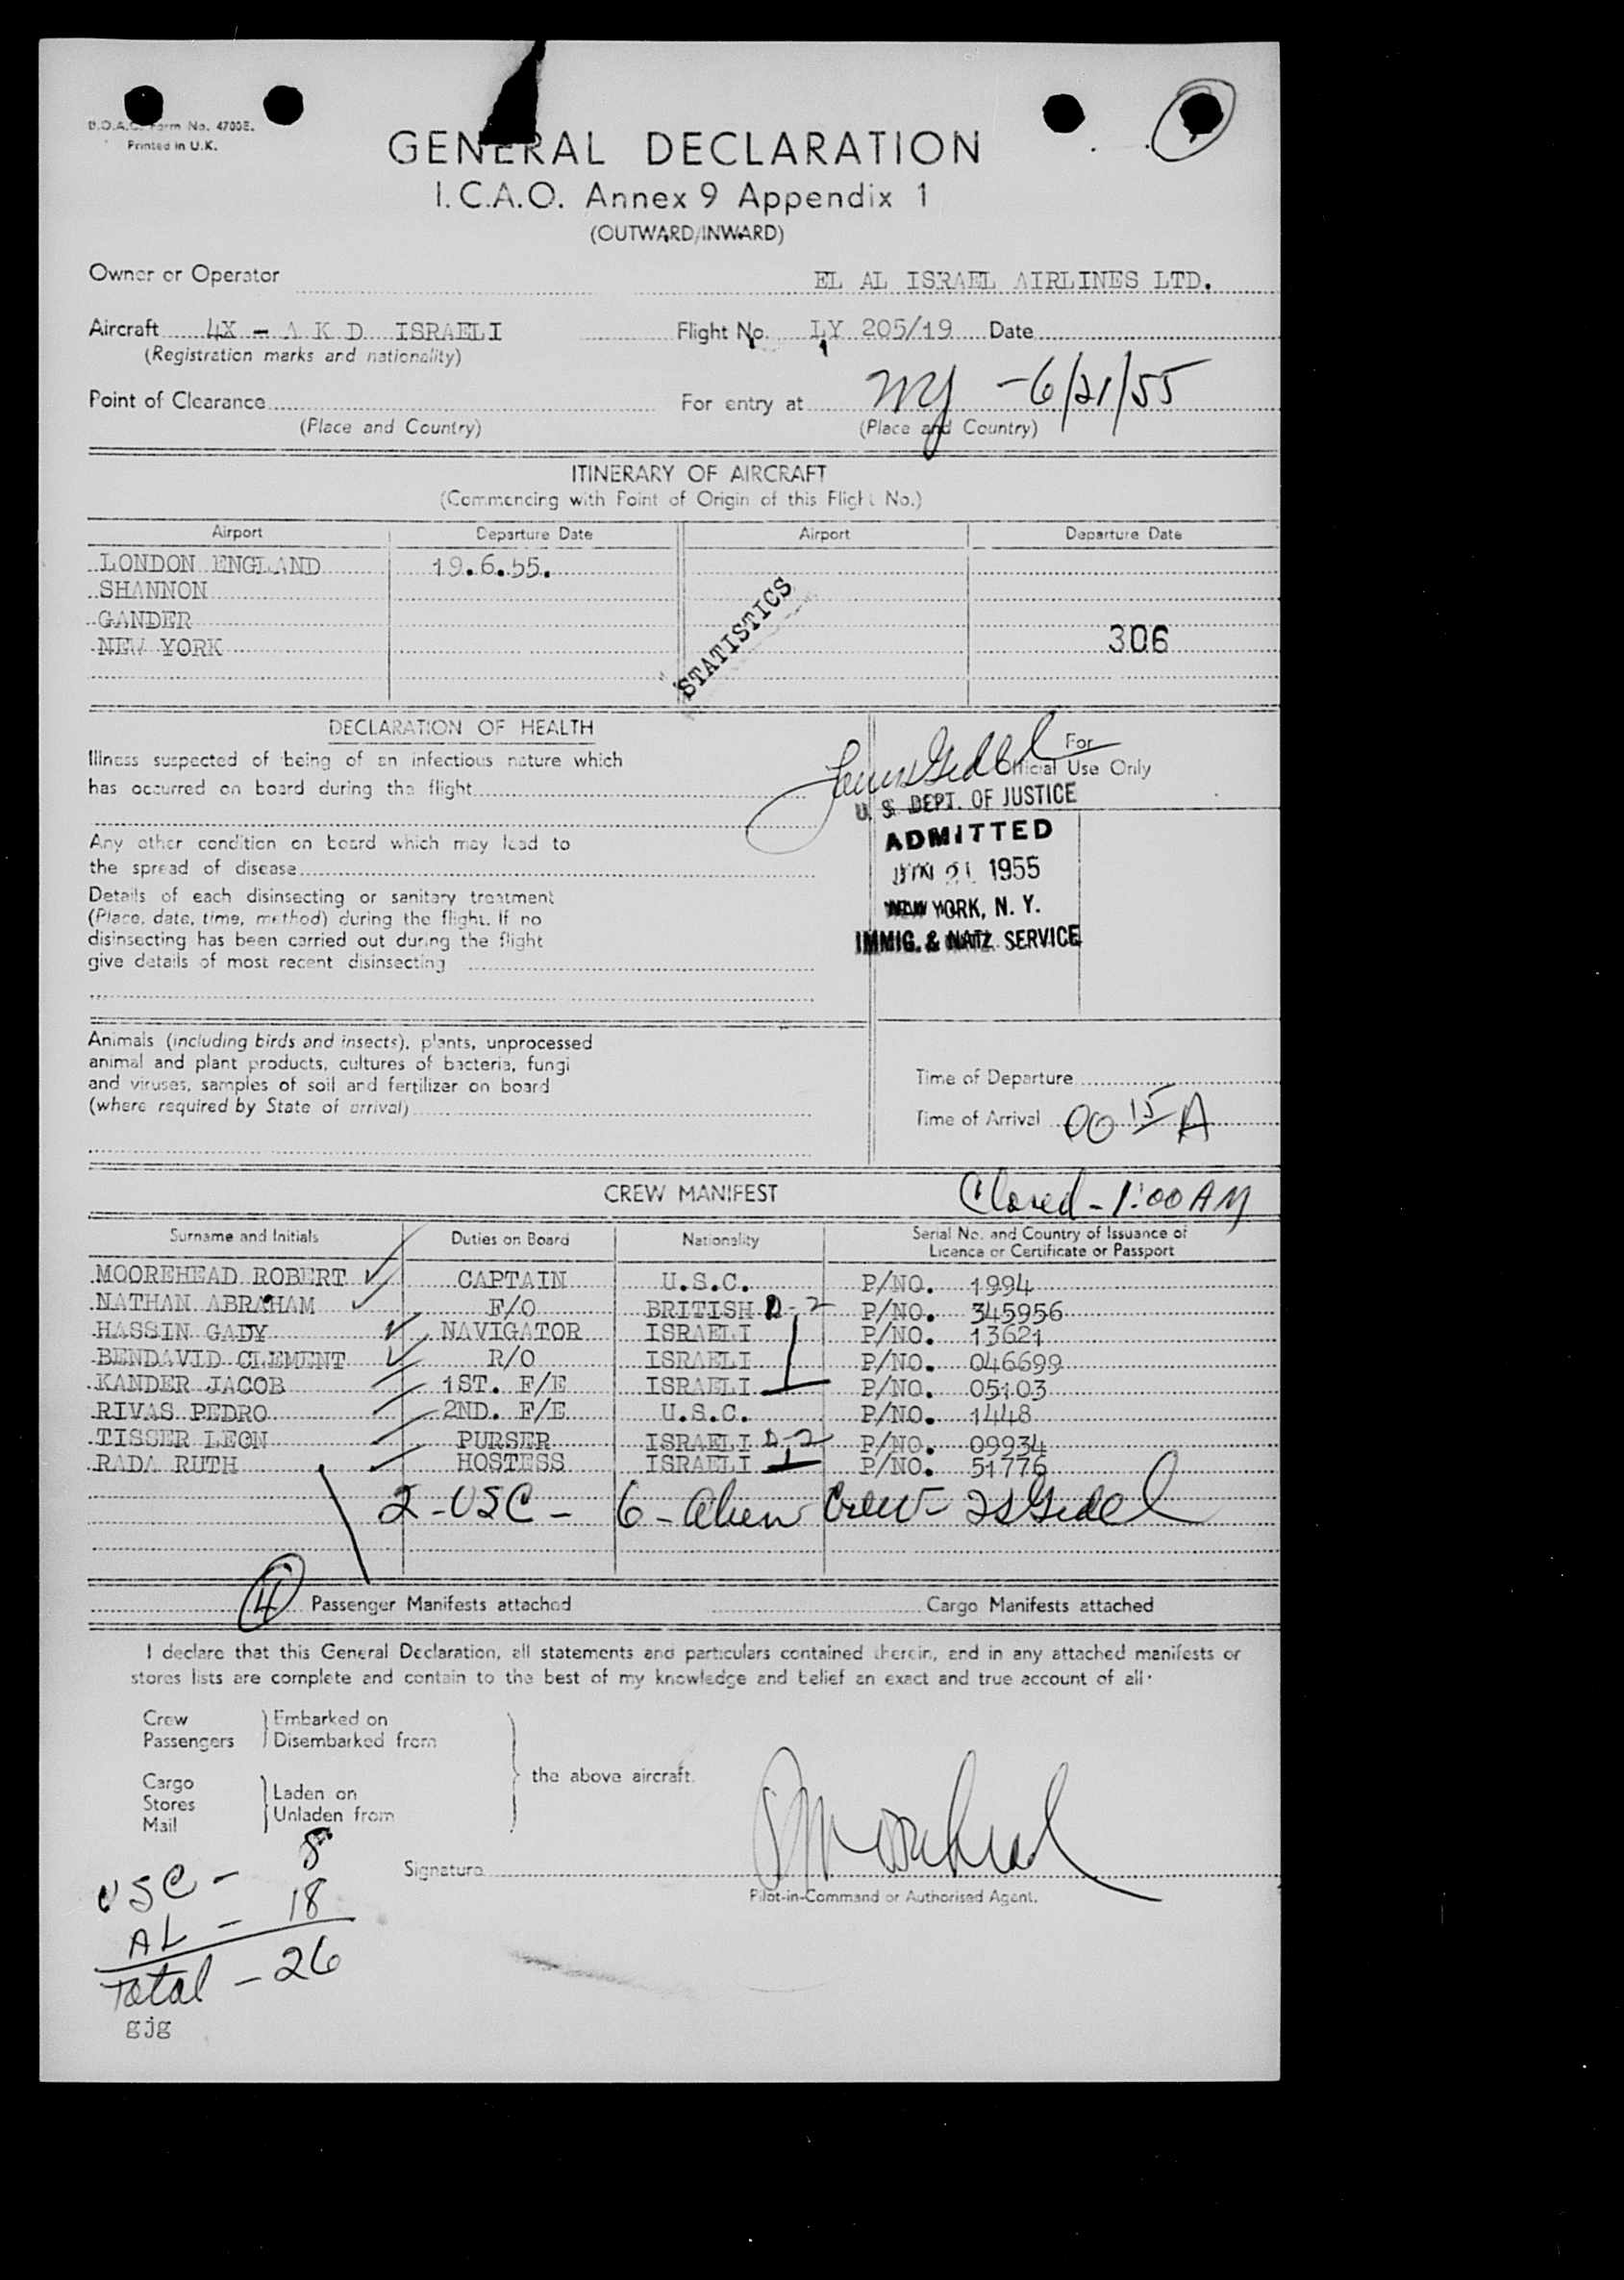 B.O.A.C. Form No. 4700E.
Printed in U.K.
GENERAL DECLARATION
I.C.A.O. Annex 9 Appendix 1
(OUTWARD/INWARD)
Owner or Operator EL AL ISRAEL AIRLINES LTD.
Aircraft 4X - A K D ISRAELI Flight No. LY 205/19 Date
(Registration marks and nationality)
Point of Clearance For entry at NY - 6/21/55
(Place and Country) (Place and Country)
ITINERARY OF AIRCRAFT
(Commencing with Point of Origin of this Flight No.)
Airport Departure Date Airport Departure Date
LONDON ENGLAND 19.6.55.
SHANNON
GANDER
NEW YORK 306
STATISTICS
DECLARATION OF HEALTH
For
Official Use Only
Illness suspected of being of an infectious nature which
has occurred on board during the flight
U. S. DEPT. OF JUSTICE
ADMITTED
JUN 21 1955
NEW YORK, N. Y.
IMMIG. & NATZ. SERVICE
Any other condition on board which may lead to
the spread of disease
Details of each disinsecting or sanitary treatment
(Place, date, time, method) during the flight. If no
disinsecting has been carried out during the flight
give details of most recent disinsecting
Animals (including birds and insects), plants, unprocessed
animal and plant products, cultures of bacteria, fungi
and viruses, samples of soil and fertilizer on board
(where required by State of arrival)
Time of Departure
Time of Arrival 00 15 A
CREW MANIFEST Closed - 1:00 AM
Surname and Initials Duties on Board Nationality Serial No. and Country of Issuance of
Licence or Certificate or Passport
MOOREHEAD ROBERT CAPTAIN U.S.C. P/NO. 1994
NATHAN ABRAHAM F/O BRITISH D-2 P/NO. 345956
HASSIN GADY NAVIGATOR ISRAELI P/NO. 13621
BENDAVID CLEMENT R/O ISRAELI P/NO. 046699
KANDER JACOB 1ST. F/E ISRAELI P/NO. 05103
RIVAS PEDRO 2ND. F/E U.S.C. P/NO. 1448
TISSER LEON PURSER ISRAELI D-2 P/NO. 09934
RADA RUTH HOSTESS ISRAELI P/NO. 51776
2 - USC - 6 - Alien Crew -
4 Passenger Manifests attached Cargo Manifests attached
I declare that this General Declaration, all statements and particulars contained therein, and in any attached manifests or
stores lists are complete and contain to the best of my knowledge and belief an exact and true account of all:
Crew Embarked on
Passengers Disembarked from
the above aircraft.
Cargo
Stores Laden on
Mail Unladen from
Signature
Pilot-in-Command or Authorised Agent.
USC - 8
AL - 18
Total - 26
gjg